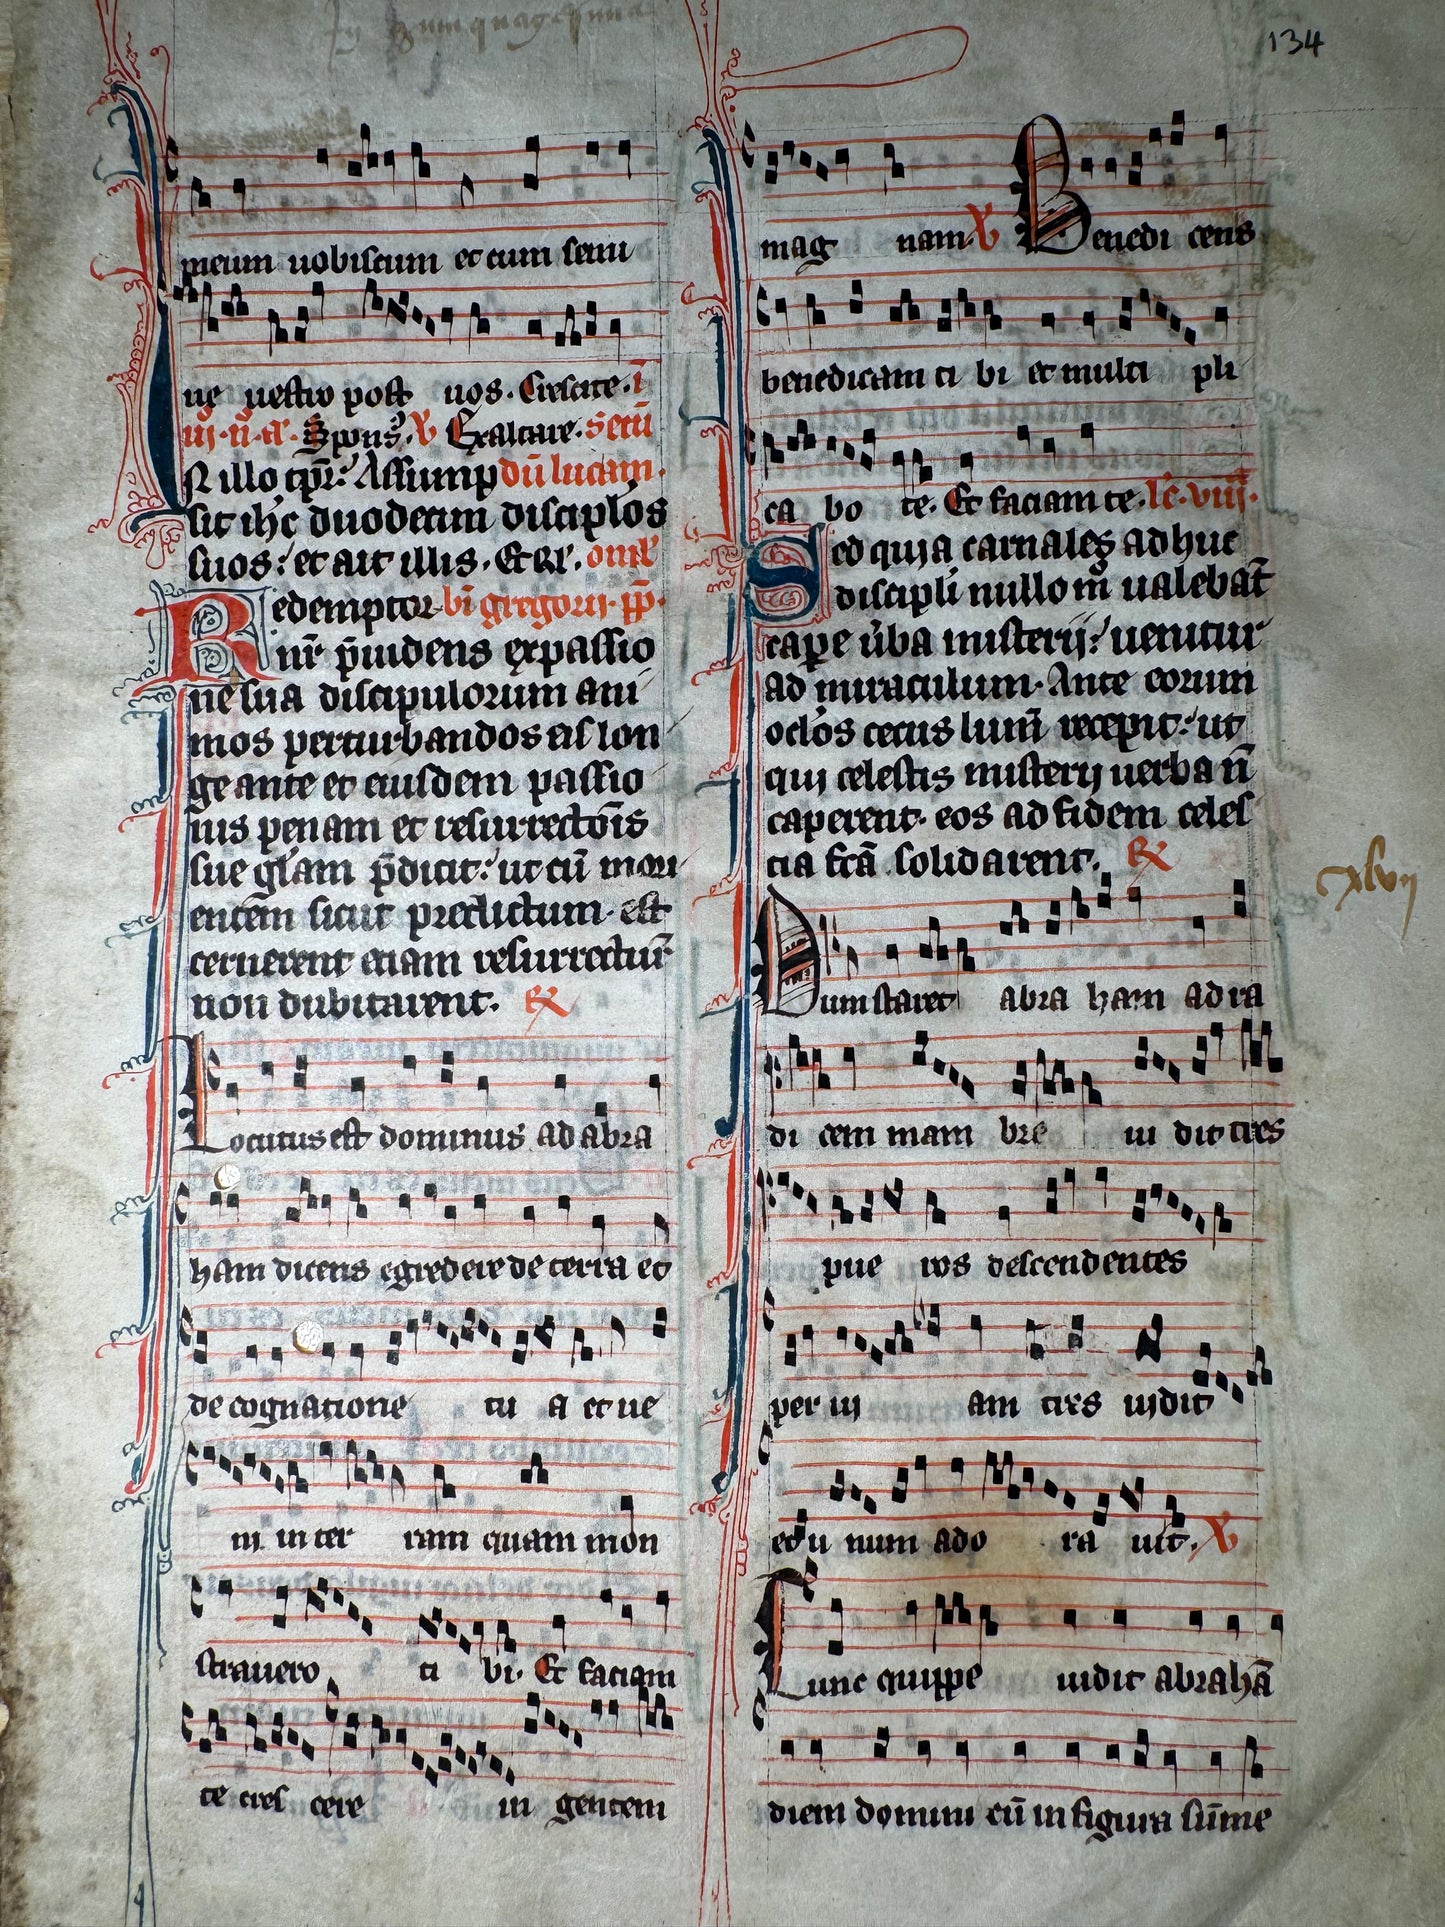 In quinquagesima
134
meum uobiscum et cum semi
ne uestro post uos. Crescite. i
iij. n. a. Spons9. v Exaltare. Secu
N illo tpr: Assump dū lucam.
sit ihc duodecim disciplos
suos: et ait illis. Et R. omł
Redemptor bī gregorii. pp.
nr̄ p̄uidens ex passio
ne sua discipulorum ani
mos perturbandos eis lon
ge ante et eiusdem passio
nis penam et resurrectōis
sue glāam p̄dicit: ut cū mori
entem sicut predictum est
cernerent etiam resurrectur̄
non dubitarent. R
Locutus est dominus ad abra
ham dicens egredere de terra et
de cognatione tu a et ue
ni in ter ram quam mon
strauero ti bi. Et faciam
te cres cere in gentem
mag nam. V Benedi cens
benedicam ti bi et multi pli
ca bo te. Et faciam te. lc̄. viij.
Sed quia carnales adhuc
discipli nullo m̄ ualebāt
cape ūba misterij: uenitur
ad miraculum. Ante eorum
oclos cecus lum̄ recepit: ut
qui celestis misterij uerba n̄
caperent. eos ad fidem celes
tia fc̄ā solidarent. R
xlvij
Dum staret abra ham ad ra
di cem mam bre ui dit tres
pue ros descendentes
per ui am tres uidit
et u num ado ra uit. V
Tunc quippe uidit abrahā
diem domini cū in figura sūme